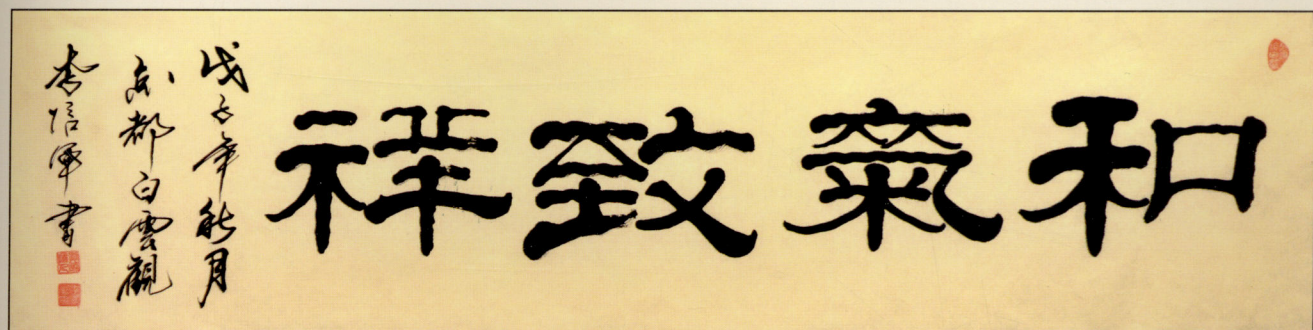 和氣致祥
戊子年秋月
都白雲觀
李信軍書